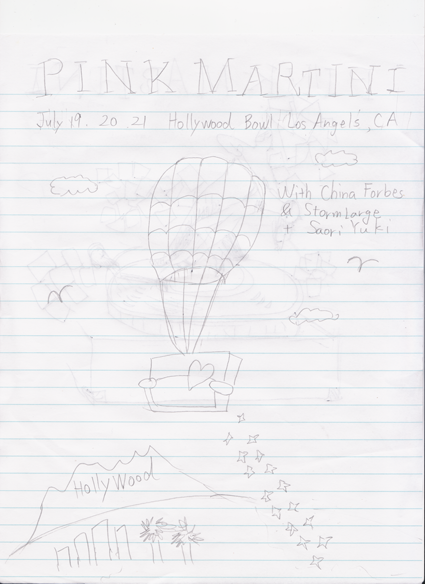 PINK MARTINI
July 19. 20. 21 Hollywood Bowl Los Angels', CA
With China Forbes
& Storm large
+ Saori Yuki
HollyWood